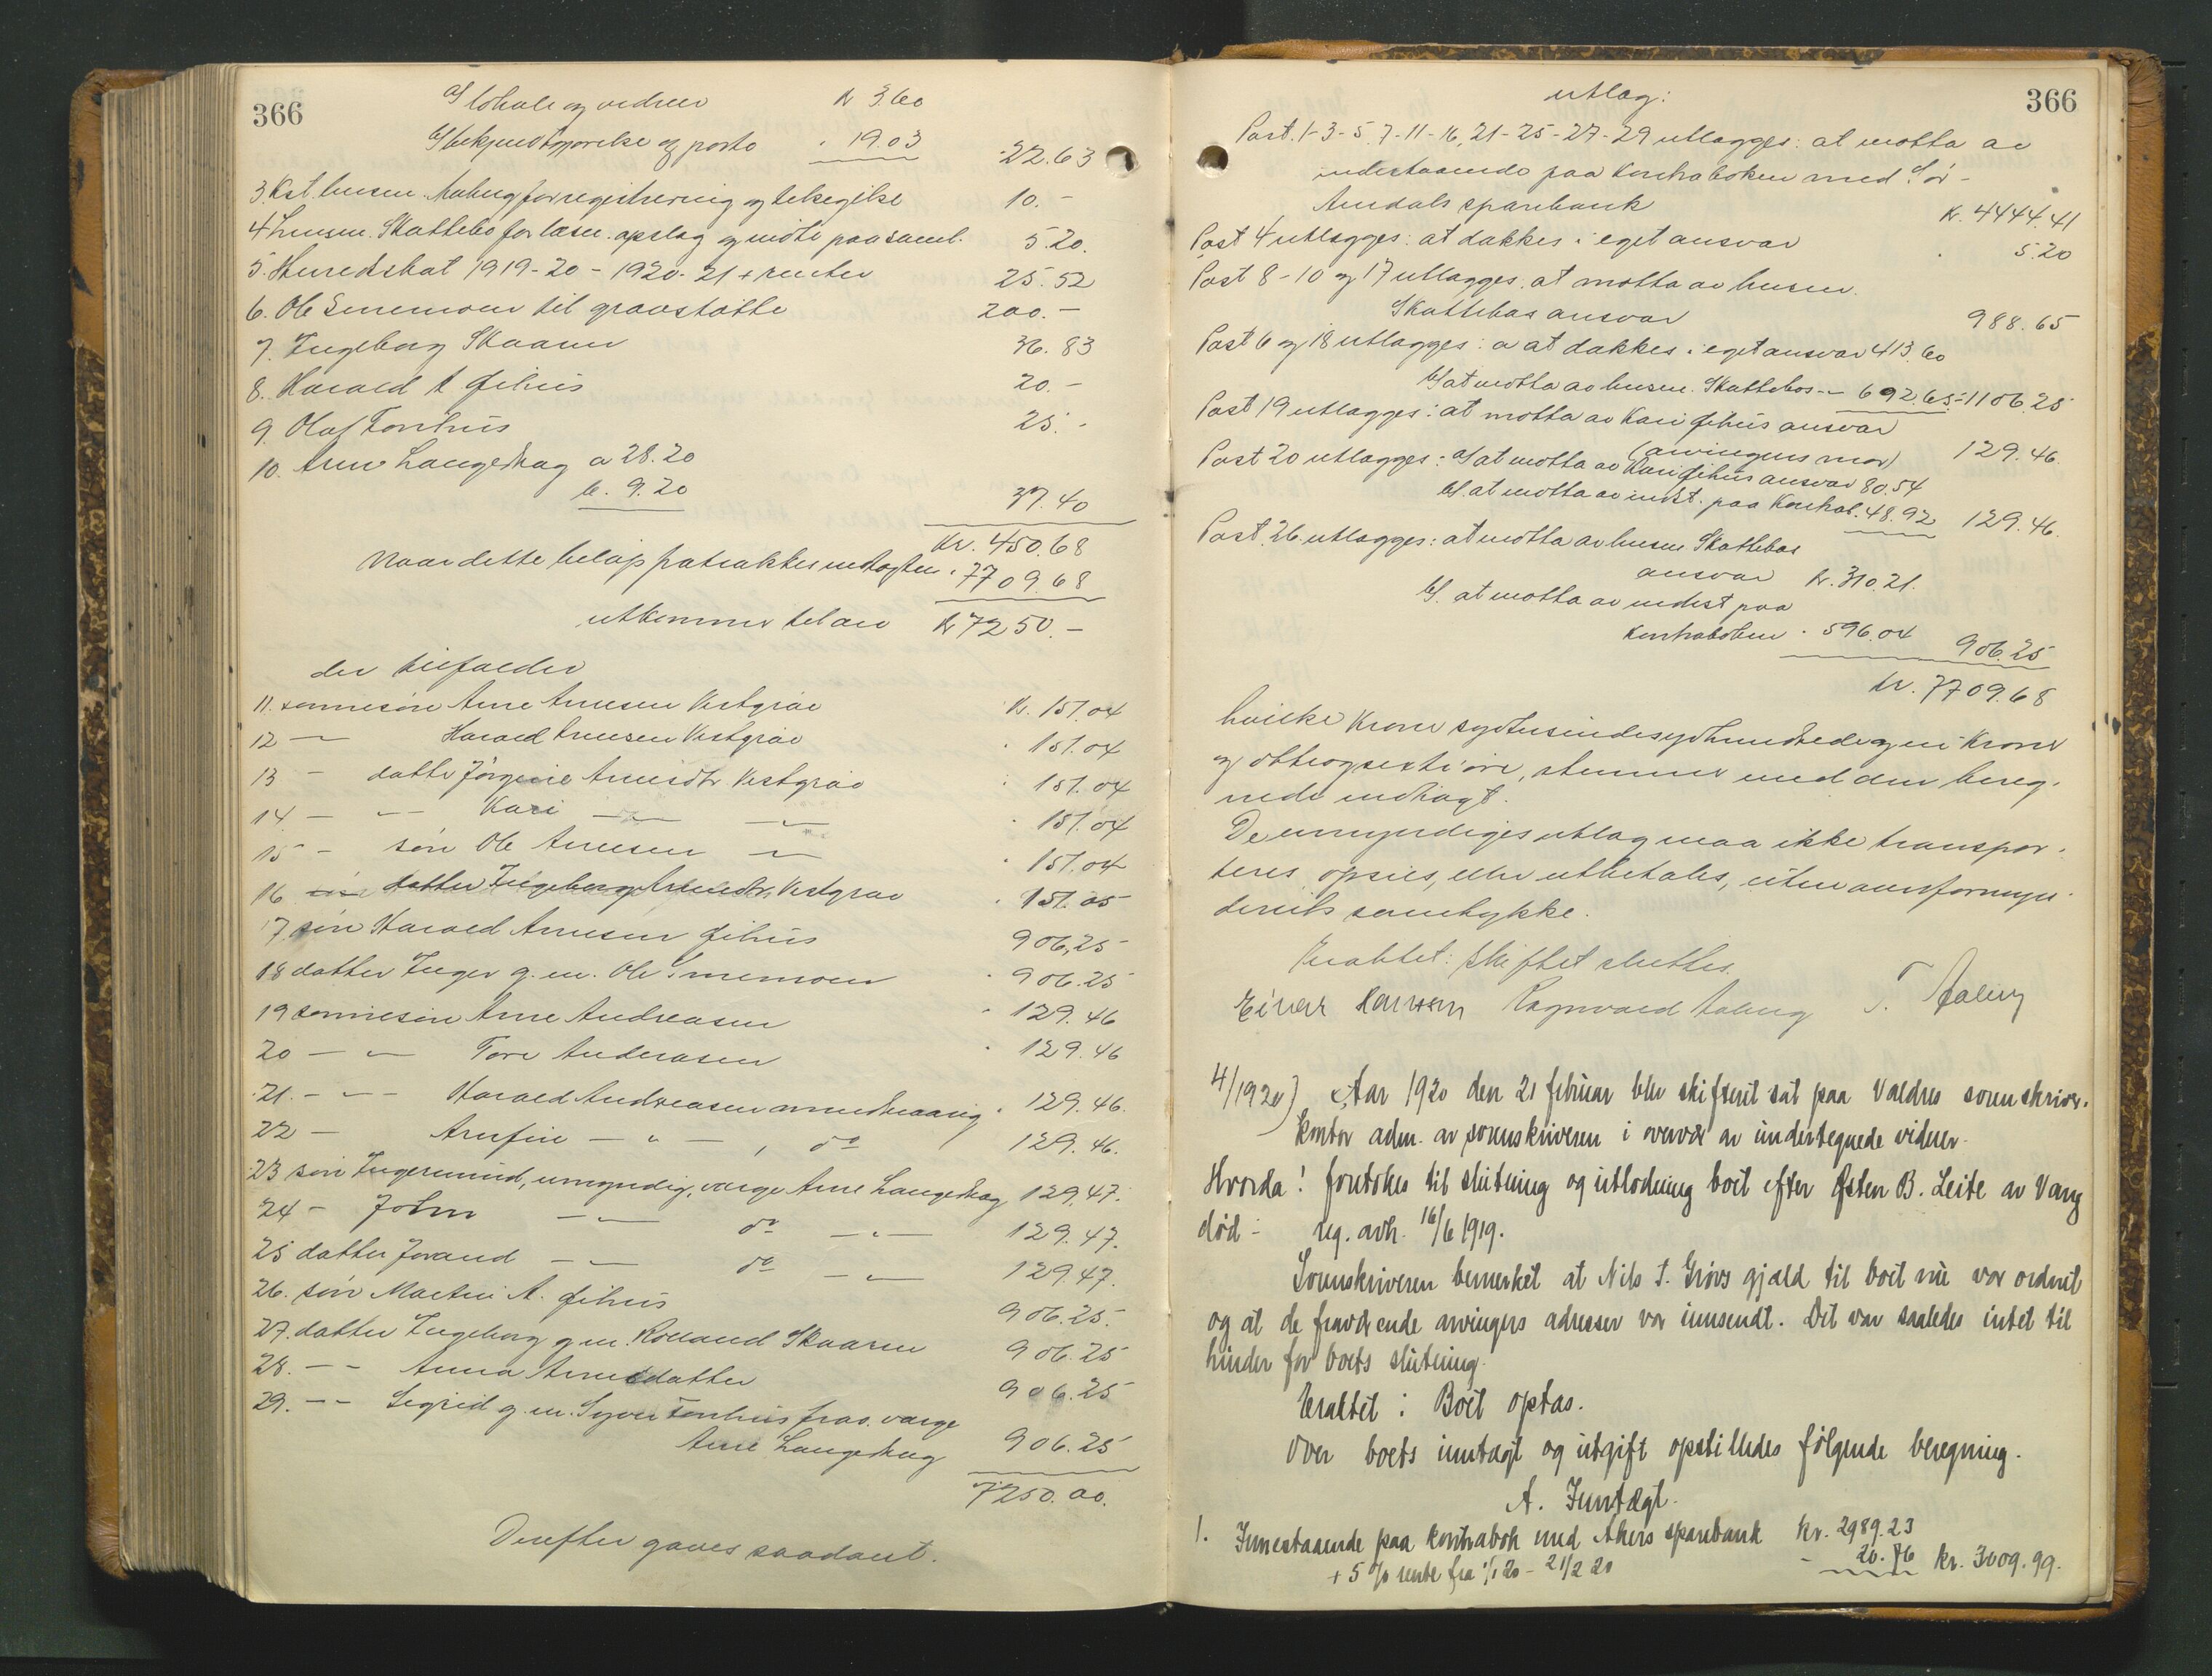 366
a/ lokale og vidner kr 3.60
b/ bekjendtgjørelse og porto " 19.03 22.63
3. Kst. lensm. Aaberg for registrering og tilsigelse 10.-
4 Lensm. Skattebo for læsn. opslag og møte paa saml. 5.20.
5. Herredskat 1919-20 - 1920-21 + renter 25.52
6. Ole Sinemoen til gravstøtte 200.-
7. Ingeborg Skaaren 36.83
8. Harald A Jihus 20.-
9. Olaf Tonhus 25.-
10. Arne Langedrag a 28.20
b. 9.20 37.40
Kr. 450.68
Naar dette beløp fratrækkes indtægten " 7709.68
utkommer til arv kr 7250.-
der tilfalder
11. sønnesøn Arne Arnesen Vestgrav kr. 151.04
12 — Harald Arnesen Vestgrav " 151.04
13 - datter Jørgine Arnesdtr Vestgrav " 151.04
14. - — Kari — — " 151.04
15 - søn Ole Arnesen — " 151.04
16 datter Ingeborg Arnesdtr. Vestgrav " 151.05
17 søn Harald Arnesen Jihus 906,25
18 datter Inger g.m. Ole Sinemoen " 906.25
19 sønnesøn Arne Andreasen " 129.46
20 — " — Tore Andreasen " 129.46
21. - " - Harald Andreasen mindreaarig " 129.46.
22 - Arnfin — " — , do 129.46.
23 søn Ingemund, umyndig, værge Arne Langedrag 129.47.
24 - John — " — do — " — 129.47.
25 datter Jorand — " — do — " — 129.47.
26. søn Martin A. Jihus 906.25.
27. datter Ingeborg g.m. Rolland Skaaren 906.25
28. - - Anna Arnesdatter 906.25
29. - - Sigrid g.m. Syver Tonhus frav. værge
Arne Langedrag 906.25
7250.00.
Derefter gaves saadant.
366
utlæg:
Post. 1-3-5-7-11-16, 21-25-27-29 utlægges: at motta av
indestaaende paa kontraboken med Sør-
Aurdals sparebank kr. 4444.41
Post 4 utlægges: at dækkes i eget ansvar " 5.20
Post 8-10 og 17 utlægges. at motta av lensm.
Skattebos ansvar 988.65
Post 6 og 18 utlægges: a at dækkes i eget ansvar 413.60
b/ at motta av lensm. Skattebos - 692.65 = 1106.25
Post 19 utlægges: at motta av Kari Jihus ansvar
(arvingens mor) 129.46.
Post 20 utlægges: a/ at motta av Kari Jihus ansvar 80.54
b/. at motta av indst. paa Kontrab. 48.92 129.46.
Post. 26 utlægges: at motta av lensm Skattebos
ansvar kr. 310.21.
b/. at motta av indest paa
kontraboken " 596.04 906.25
kr. 7709.68
hvilke Kroner syvtusindesyvhundrede og ni Kroner
og otteogsekti øre, stemmer med den bereg-
nede indtægt.
De umyndiges utlæg maa ikke transpor-
teres, opsies, eller utbetales, uten overformyn-
deriets samtykke.
Eraktet: Skiftet sluttes.
Einar Hansen Ragnvald Aaberg T. Aaberg
4/1920) Aar 1920 den 21 februar blev skifteret sat paa Valdres sorenskriver-
kontor adm. av sorenskriveren i overvær av undertegnede vidner.
Hvorda! foretokes til slutning og utlodning boet efter Østen B. Leite av Vang
død - reg. avh. 16/6 1919.
Sorenskriveren bemerket at Nils T. Grøvs gjæld til boet nu var ordnet
og at de fraværende arvingers adresser var innsendt. Det var saaledes intet til
hinder for boets slutning.
Eraktet: Boet optas.
Over boets inntægt og utgift opstilledes følgende beregning.
A. Inntægt.
1. Innestaaende paa kontrabok med Akers sparebank kr. 2989.23
+ 5 % rente fra 1/1 20 - 21/2 20 - 20.76 kr. 3009.99.